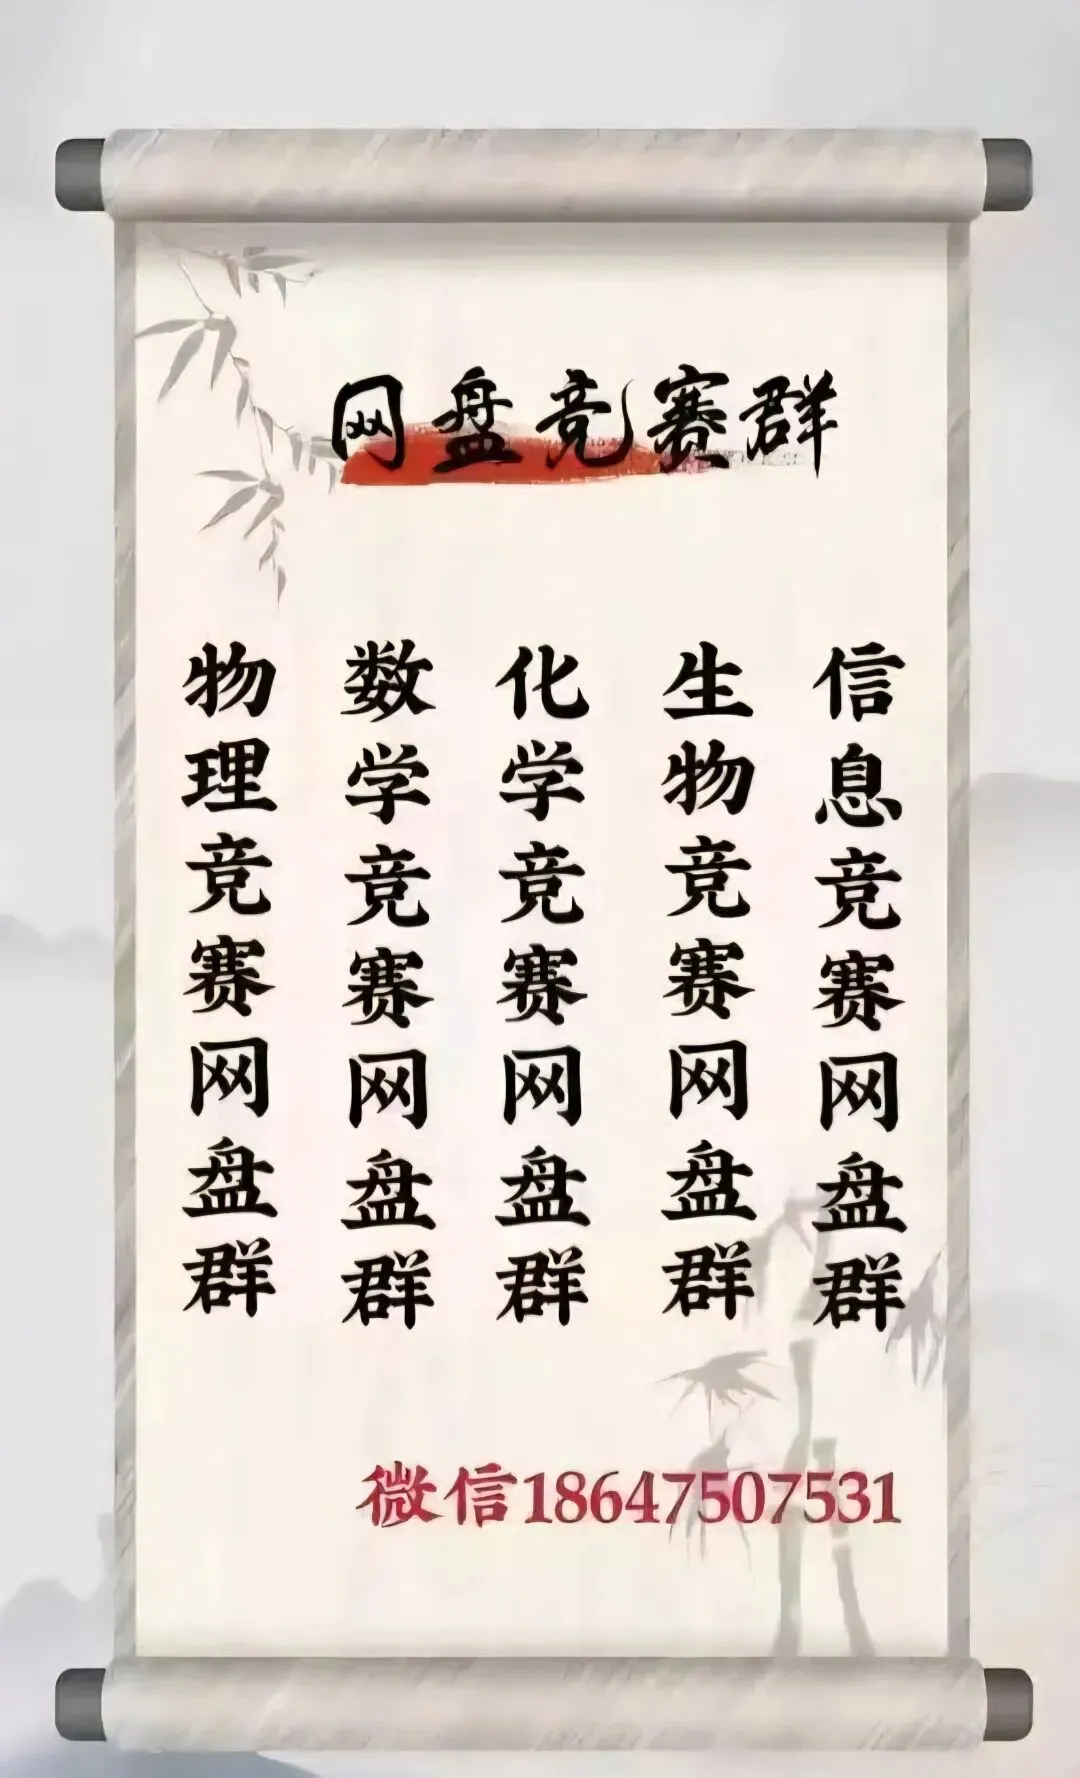 网盘竞赛群
物理竞赛网盘群
数学竞赛网盘群
化学竞赛网盘群
生物竞赛网盘群
信息竞赛网盘群
微信18647507531